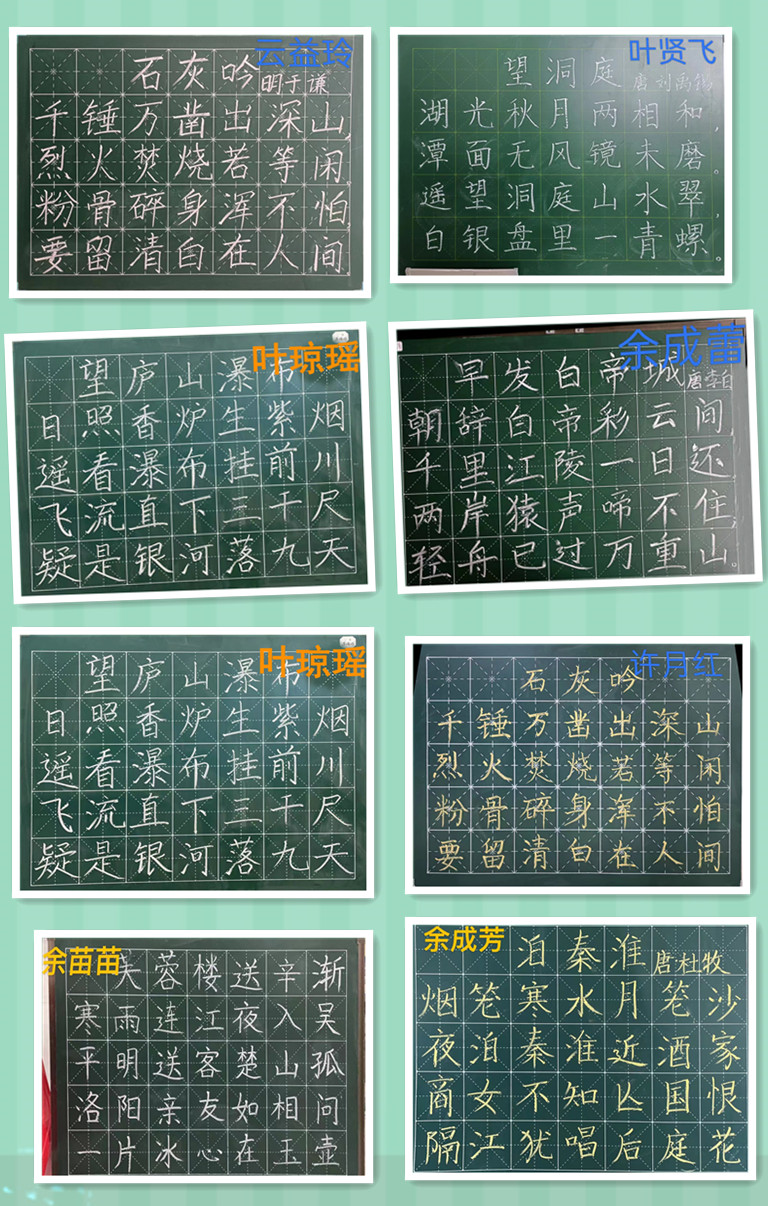 云益玲
石灰吟 明于谦
千锤万凿出深山,
烈火焚烧若等闲
粉骨碎身浑不怕
要留清白在人间
叶贤飞
望洞庭 唐刘禹锡
湖光秋月两相和，
潭面无风镜未磨。
遥望洞庭山水翠，
白银盘里一青螺。
叶琼瑶
望庐山瀑布
日照香炉生紫烟
遥看瀑布挂前川
飞流直下三千尺
疑是银河落九天
余成蕾
早发白帝城 唐李白
朝辞白帝彩云间，
千里江陵一日还
两岸猿声啼不住，
轻舟已过万重山。
叶琼瑶
望庐山瀑布
日照香炉生紫烟
遥看瀑布挂前川
飞流直下三千尺
疑是银河落九天
许月红
石灰吟
千锤万凿出深山
烈火焚烧若等闲
粉骨碎身浑不怕
要留清白在人间
余苗苗
芙蓉楼送辛渐
寒雨连江夜入吴
平明送客楚山孤
洛阳亲友如相问
一片冰心在玉壶
余成芳
泊秦淮 唐·杜牧
烟笼寒水月笼沙
夜泊秦淮近酒家
商女不知亡国恨
隔江犹唱后庭花